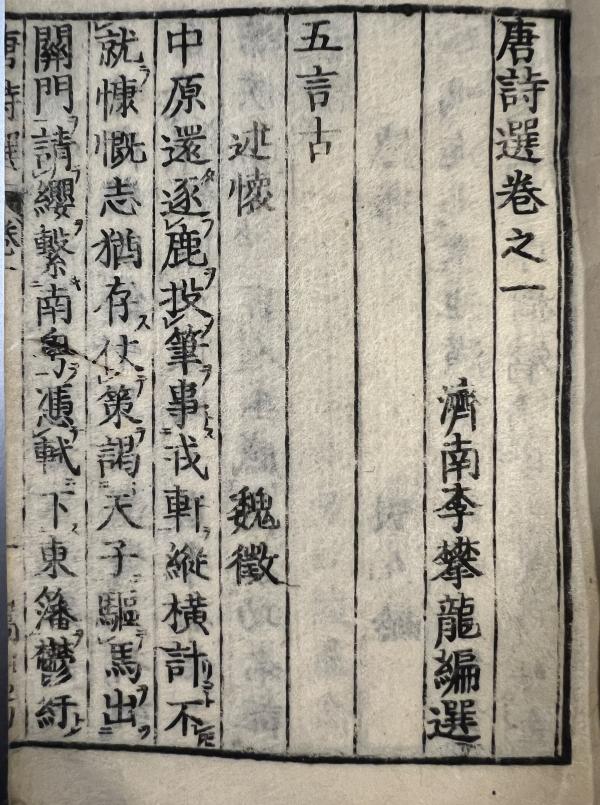 唐詩選卷之一
濟南李攀龍編選
五言古
述懷 魏徵
中原還逐鹿投筆事戎軒縱橫計不
就慷慨志猶存仗策謁天子驅馬出
關門請纓繫南粤憑軾下東籓鬱紆
唐詩選 卷一